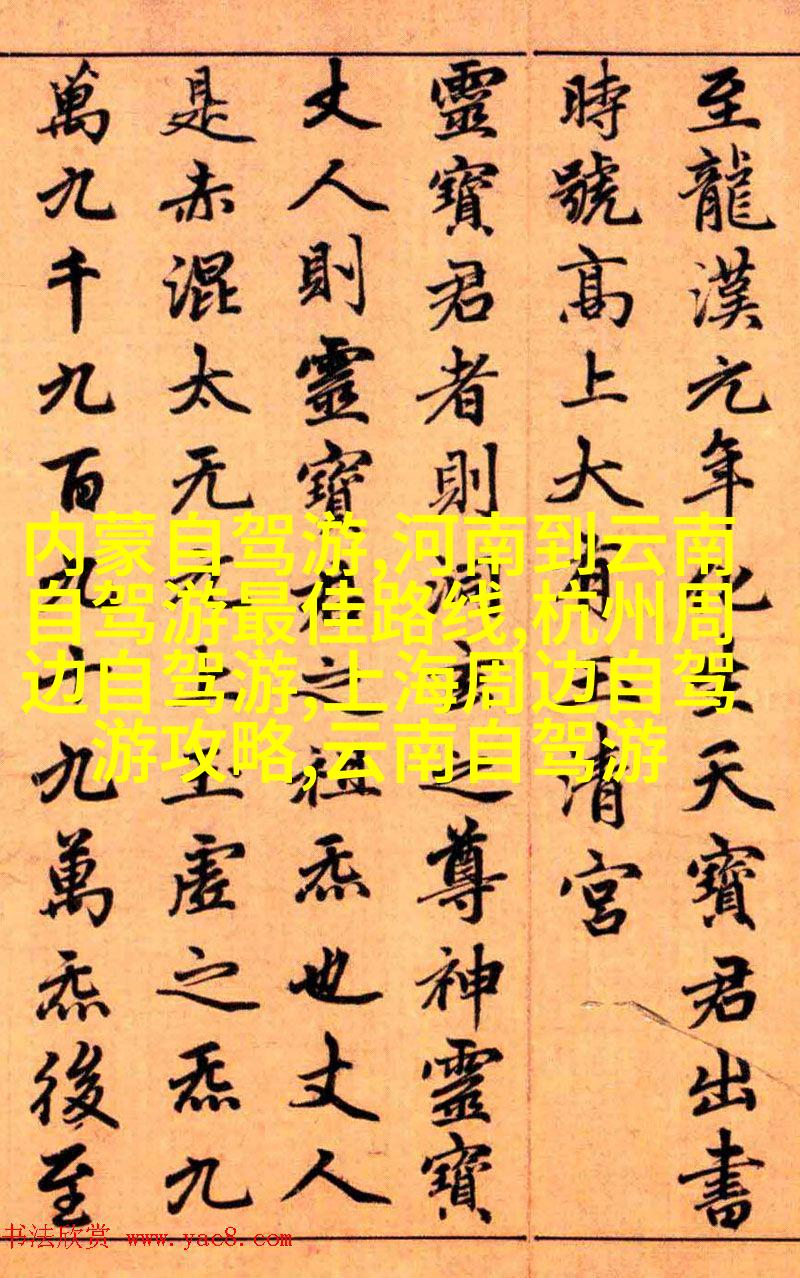 至龍漢元年化生天寶君出書
時號高上大有玉清宮
靈寶君者則洞玄之尊神靈寶
丈人則靈寶君之祖炁也丈人
是赤混太无元上玉虛之炁九
萬九千九百九十九萬炁後至
内蒙自驾游,河南到云南
自驾游最佳路线,杭州周
边自驾游,上海周边自驾
游攻略,云南自驾游
书法欣赏 www.yac8.com